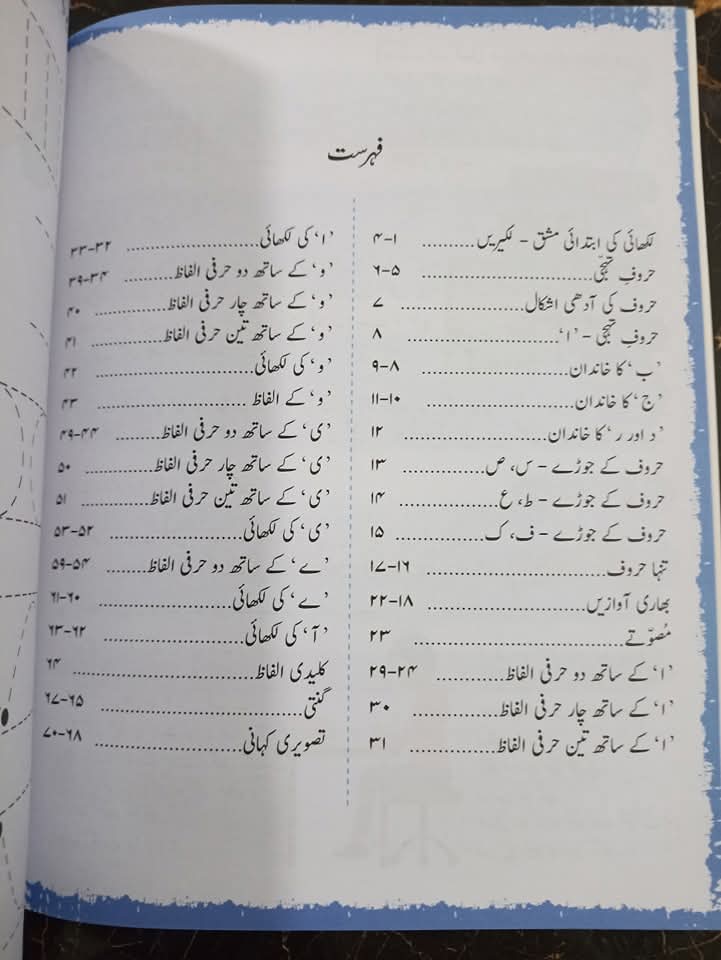 فہرست
لکھائی کی ابتدائی مشق - لکیریں .......... ۱-۴
حروفِ تہجّی .......... ۵-۶
حروف کی آدھی اشکال .......... ۷
حروفِ تہجّی - ’ا‘ .......... ۸
’ب‘ کا خاندان .......... ۸-۹
’ج‘ کا خاندان .......... ۱۰-۱۱
’د اور ر‘ کا خاندان .......... ۱۲
حروف کے جوڑے - س، ص .......... ۱۳
حروف کے جوڑے - ط، ع .......... ۱۴
حروف کے جوڑے - ف، ک .......... ۱۵
تنہا حروف .......... ۱۶-۱۷
بھاری آوازیں .......... ۱۸-۲۲
مُصوّتے .......... ۲۳
’ا‘ کے ساتھ دو حرفی الفاظ .......... ۲۴-۲۹
’ا‘ کے ساتھ چار حرفی الفاظ .......... ۳۰
’ا‘ کے ساتھ تین حرفی الفاظ .......... ۳۱
’ا‘ کی لکھائی .......... ۳۲-۳۳
’و‘ کے ساتھ دو حرفی الفاظ .......... ۳۴-۳۹
’و‘ کے ساتھ چار حرفی الفاظ .......... ۴۰
’و‘ کے ساتھ تین حرفی الفاظ .......... ۴۱
’و‘ کی لکھائی .......... ۴۲
’و‘ کے الفاظ .......... ۴۳
’ی‘ کے ساتھ دو حرفی الفاظ .......... ۴۴-۴۹
’ی‘ کے ساتھ چار حرفی الفاظ .......... ۵۰
’ی‘ کے ساتھ تین حرفی الفاظ .......... ۵۱
’ی‘ کی لکھائی .......... ۵۲-۵۳
’ے‘ کے ساتھ دو حرفی الفاظ .......... ۵۴-۵۹
’ے‘ کی لکھائی .......... ۶۰-۶۱
’آ‘ کی لکھائی .......... ۶۲-۶۳
کلیدی الفاظ .......... ۶۴
گنتی .......... ۶۵-۶۷
تصویری کہانی .......... ۶۸-۷۰